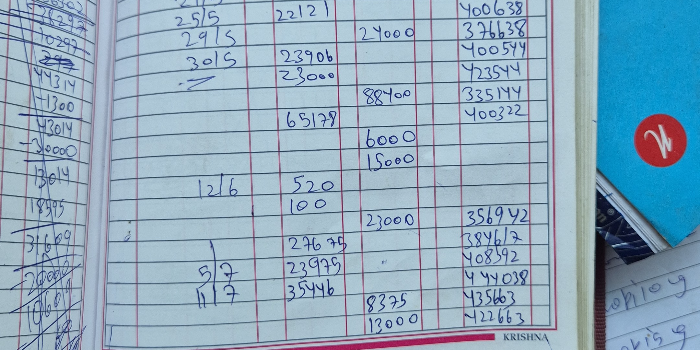 25/5 22121 400638
29/5 24000 376638
30/5 23906 400544
23000 423544
88400 335144
65178 400322
6000
15000
12/6 520
100
23000 356942
27675 384617
5/7 23975 408592
11/7 35446 444038
8375 435663
13000 422663
KRISHNA
10297
44314
-1300
43014
-30000
13014
18595
31609